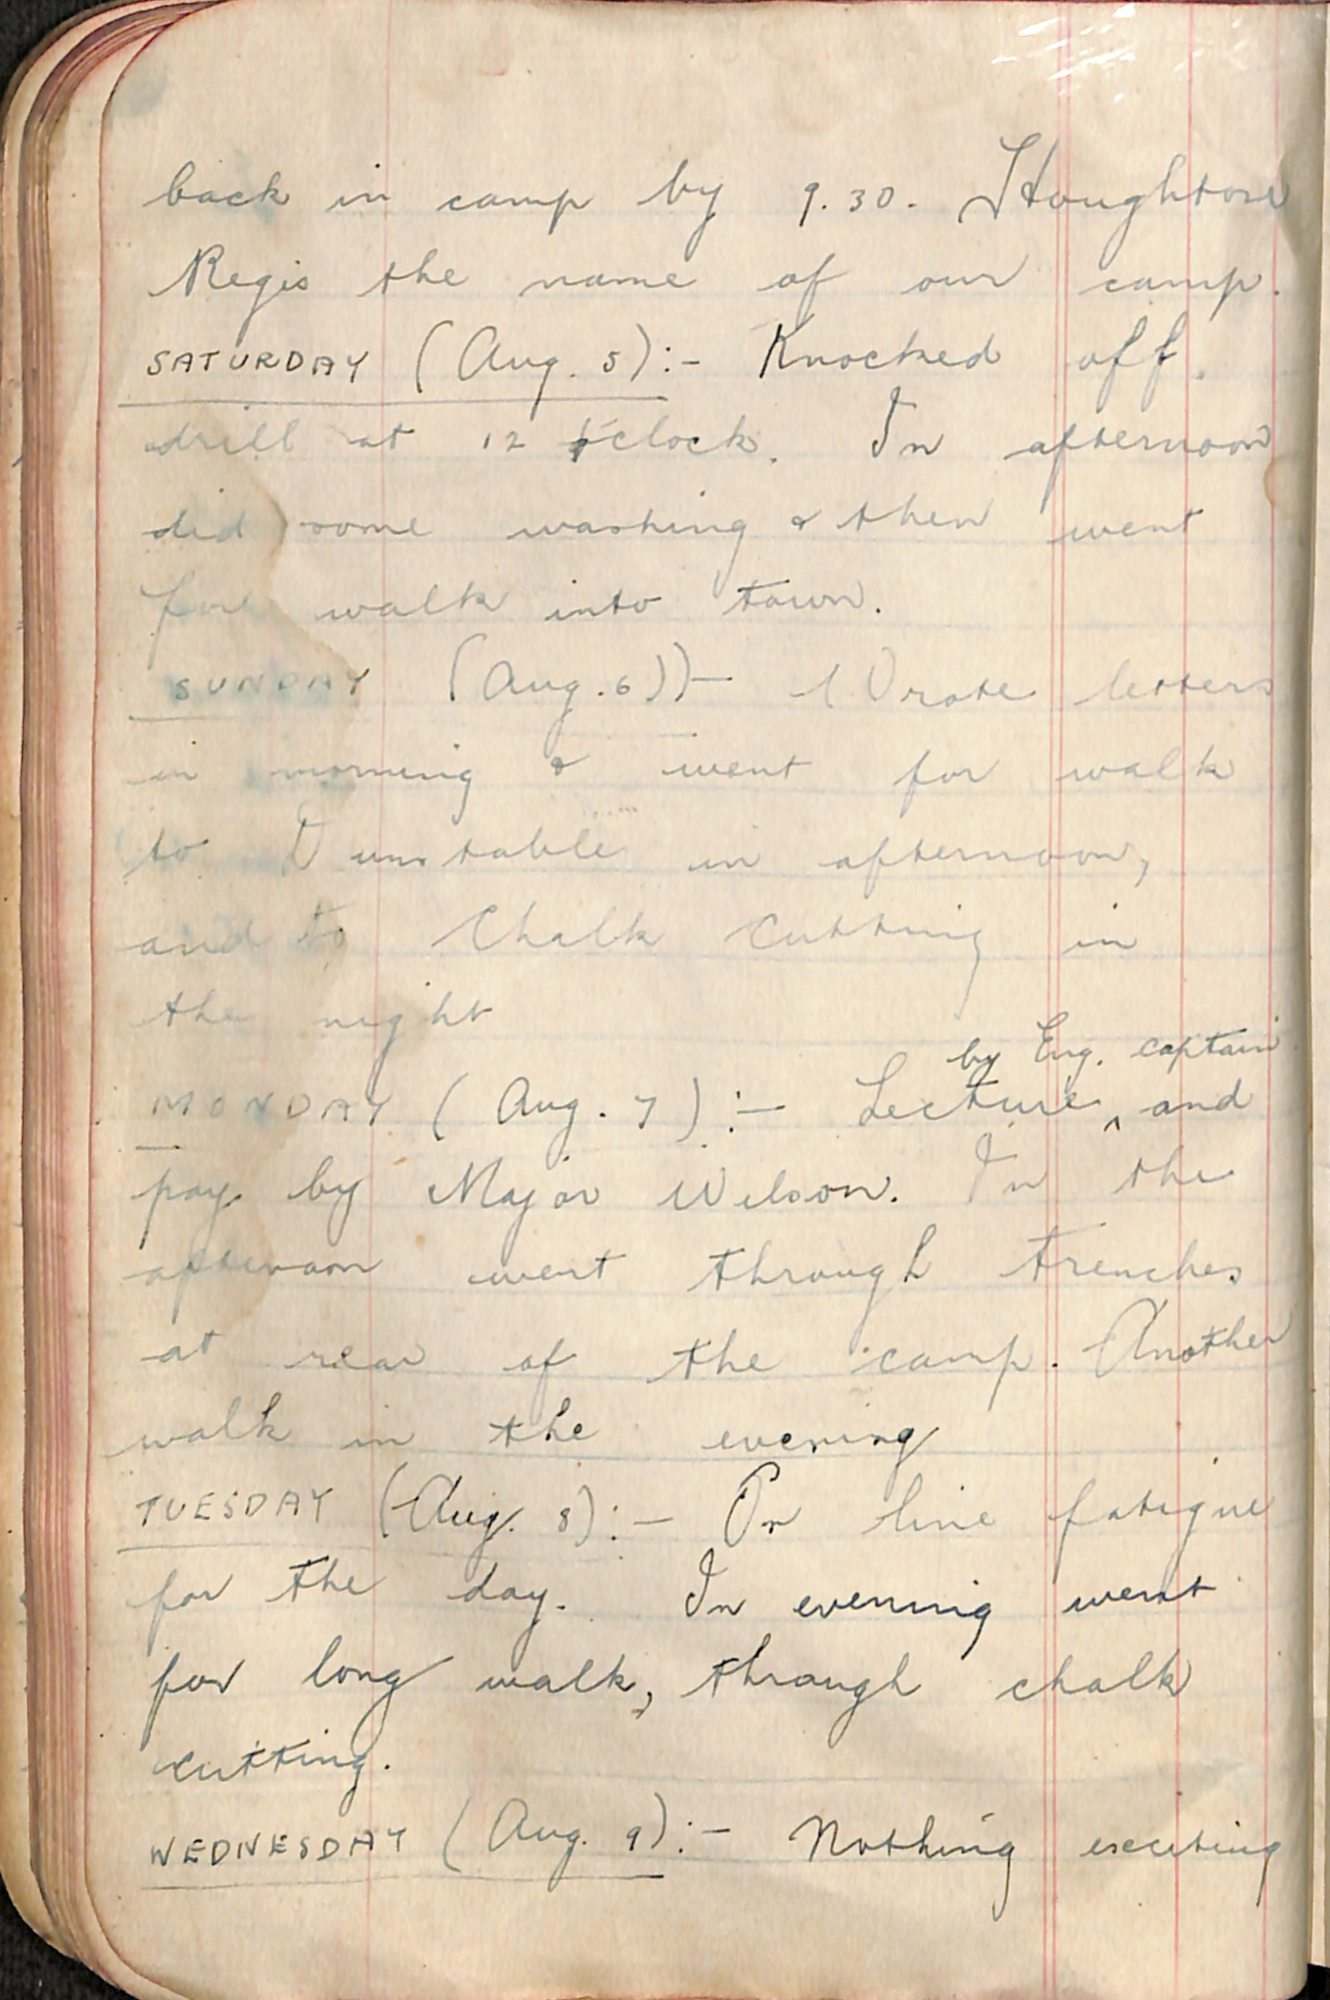 back in camp by 9.30. Houghton
Regis the name of our camp.
SATURDAY (Aug. 5):- Knocked off
drill at 12 o'clock. In afternoon
did some washing & then went
for walk into town.
SUNDAY (Aug. 6):- Wrote letters
in morning & went for walk
to Dunstable in afternoon,
and to Chalk Cutting in
the night
by Eng. captain
MONDAY (Aug. 7):- Lecture ^ and
pay by Major Wilson. In the
afternoon went through trenches
at rear of the camp. Another
walk in the evening
TUESDAY (Aug. 8):- On line fatigue
for the day. In evening went
for long walk, through chalk
cutting.
WEDNESDAY (Aug. 9):- Nothing exciting